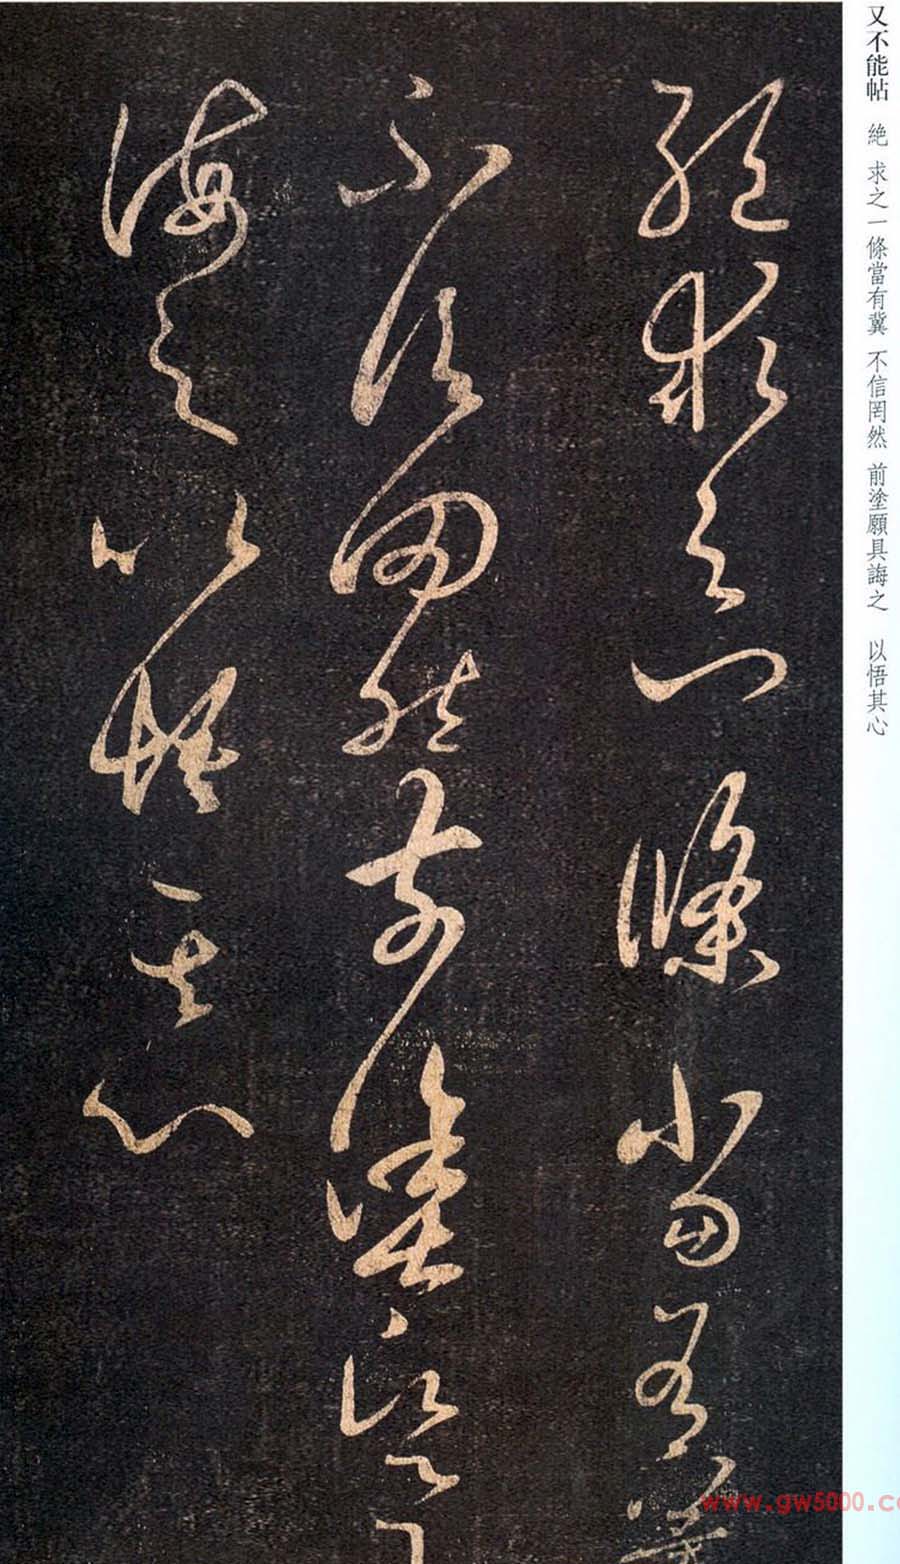 又不能帖 絶 求之一條當有冀 不信罔然 前塗願具誨之 以悟其心
絶求之一條當有冀
不信罔然前塗願具
誨之以悟其心
www.gw5000.co